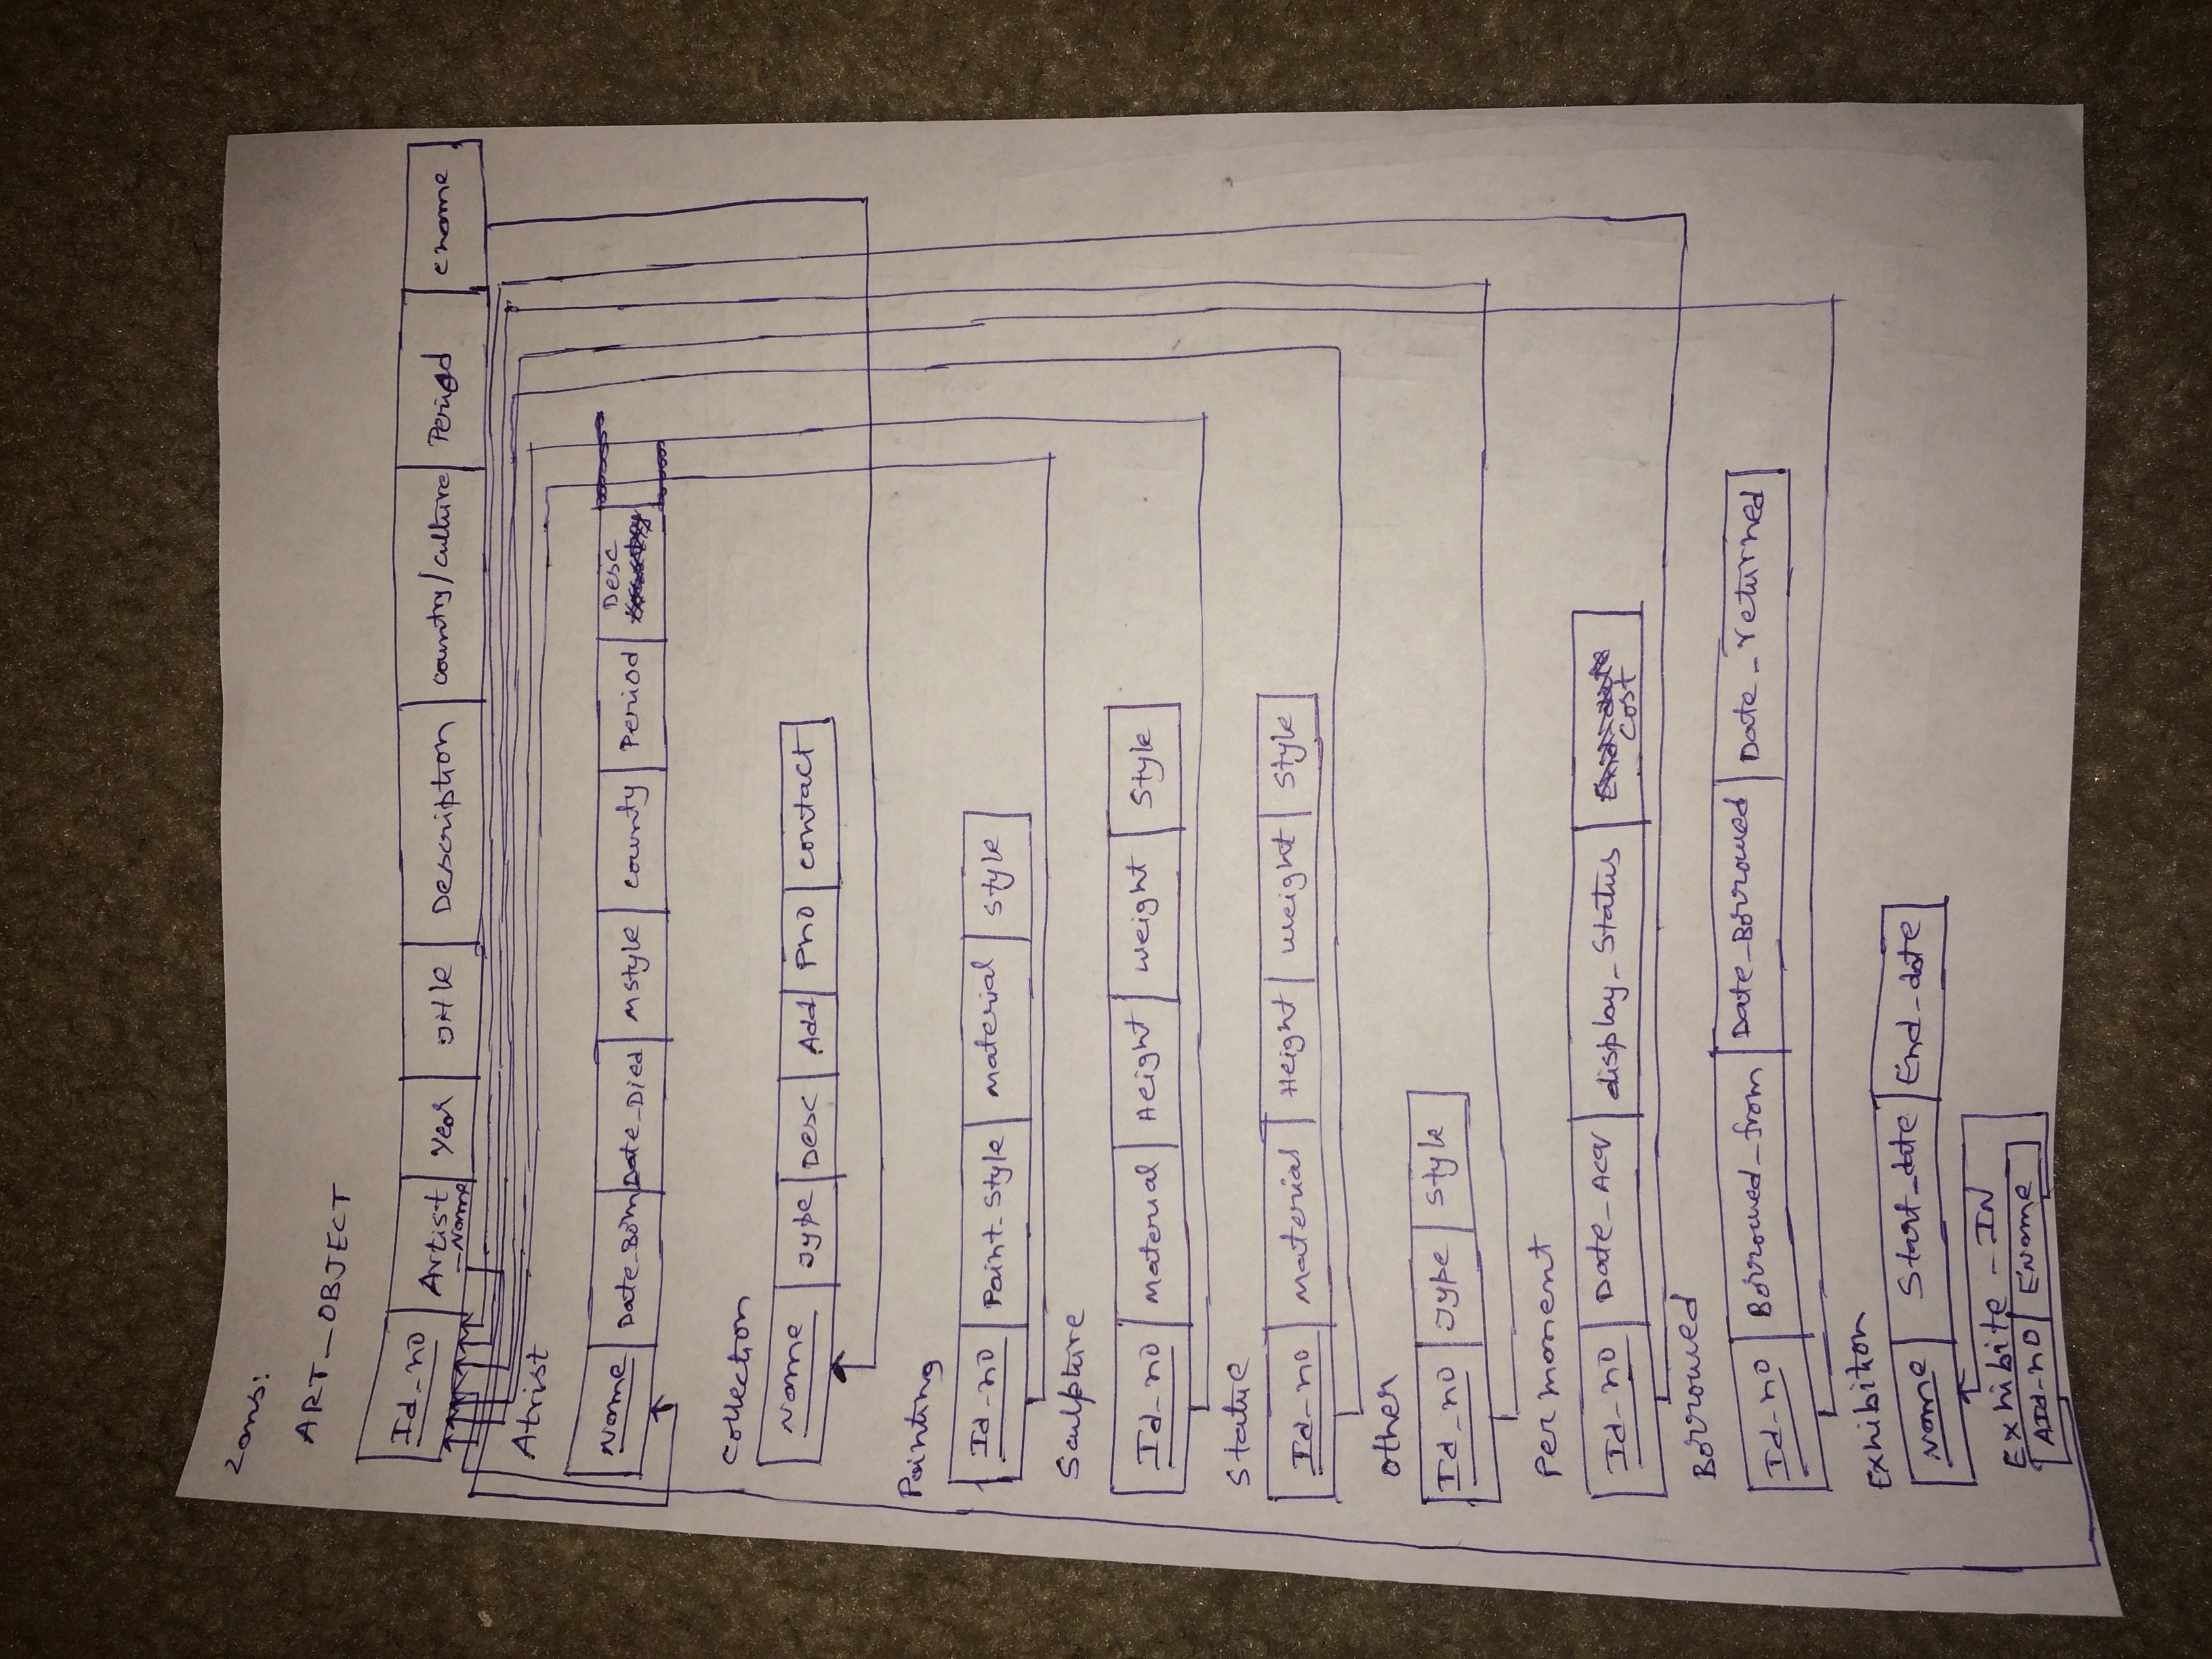 2ans:
ART_OBJECT
Id_no Artist_Name Year Title Description country/culture Period cname
Atrist
Name Date_Born Date_Died Mstyle county Period Desc
Collection
Name Type Desc Add Pno contact
Painting
Id_no Paint_Style Material Style
Sculpture
Id_no Material Height weight Style
Statue
Id_no Material Height weight Style
other
Id_no Type Style
Permanent
Id_no Date_Acq display_Status cost
Borrowed
Id_no Borrowed_from Date_Borrowed Date_returned
Exhibition
Name Start_date End_date
Exhibite_IN
AId_no EName